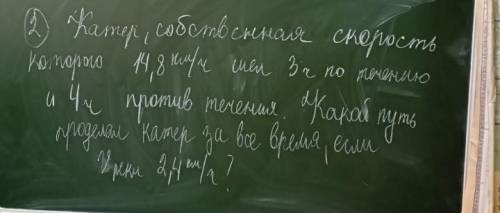 ② Катер, собственная скорость
которого 14,8 км/ч шел 3ч по течению
и 4ч против течения. Какой путь
проделал катер за все время, если
Vреки 2,4 км/ч?